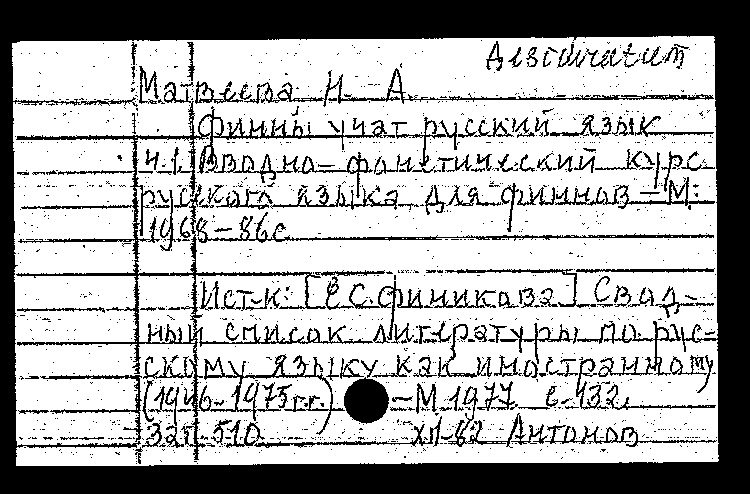 Desideratum
Матвеева Н. А.
Финны учат русский язык
Ч.1. Вводно-фонетический курс
русского языка для финнов – М.:
1968 – 86с.
Ист-к: [Е С. Финикова] Свод-
ный список литературы по рус-
скому языку как иностранному
(1946-1975г.г.) – М. 1977 с-132.
Зап 510 XII-82 Антонов